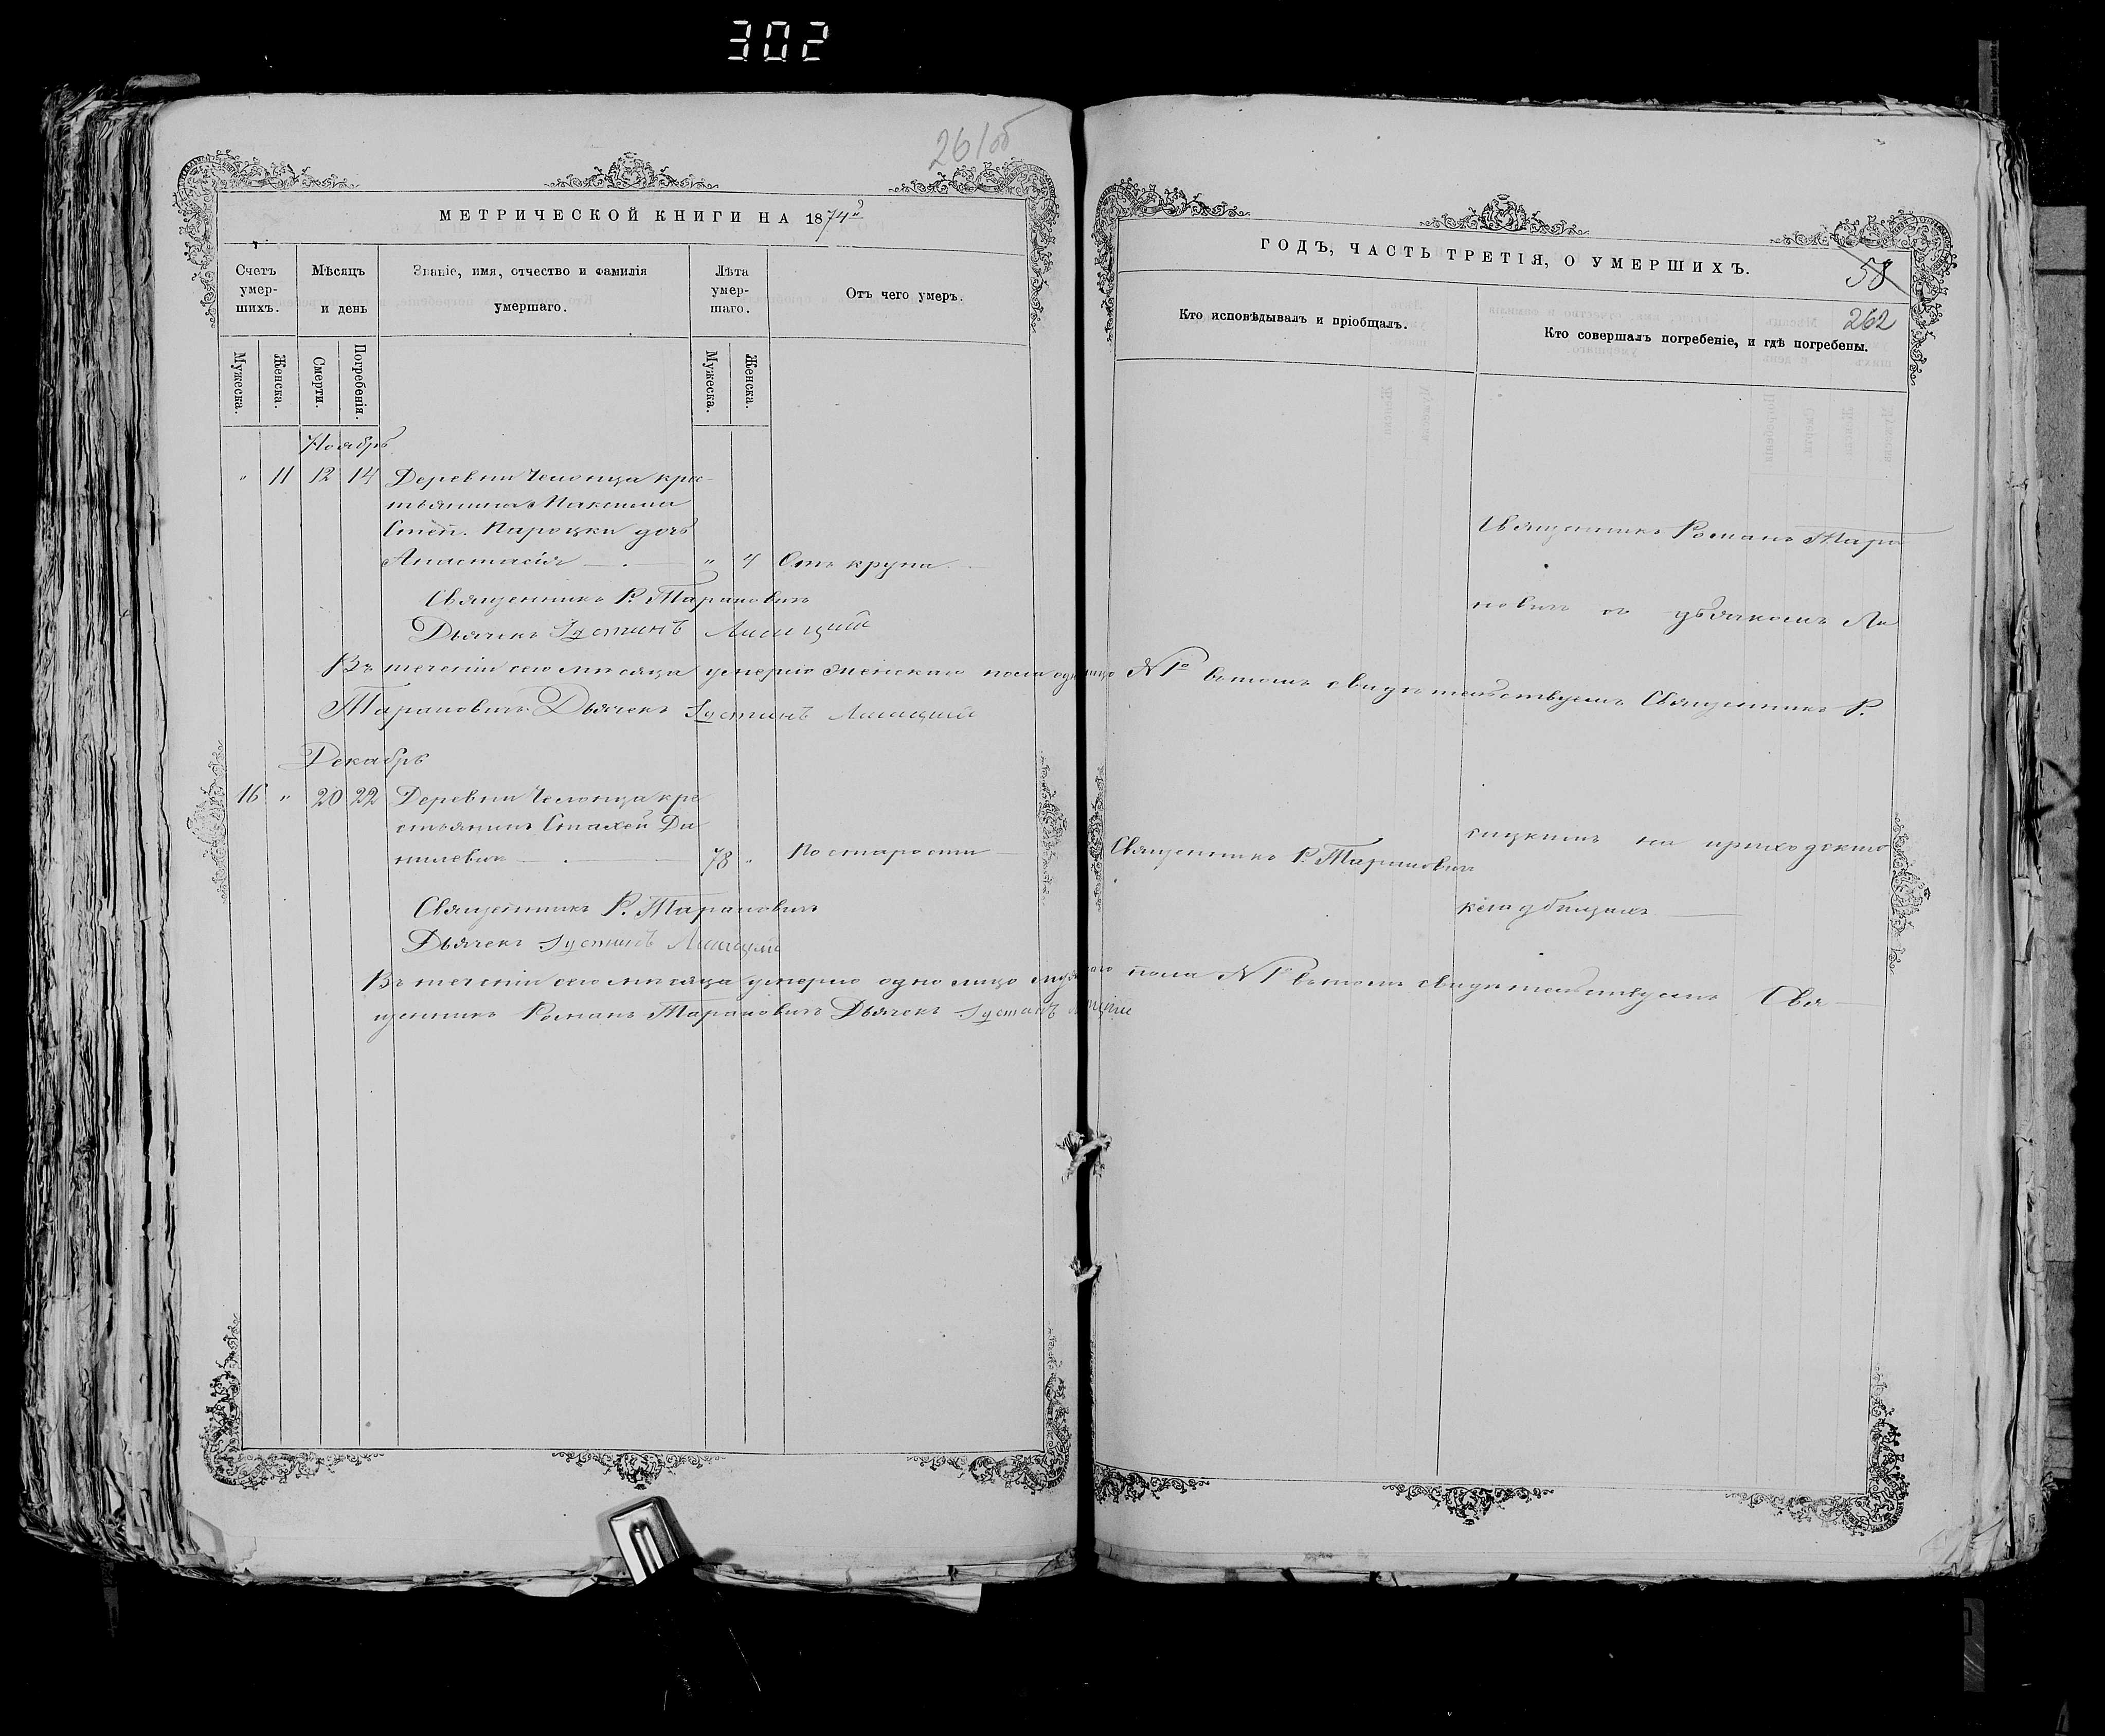 302
261 об
МЕТРИЧЕСКОЙ КНИГИ НА 1874й
Счетъ умер-шихъ.
Мѣсяцъ и день
Званіе, имя, отчество и фамилія умершаго.
Лѣта умер-шаго.
Отъ чего умеръ.
Мужеска.
Женска.
Смерти.
Погребенія.
Мужеска.
Женска.
Ноябрь
" 11 12 14 Деревни кре-
стьянина Максима
Степ. дочь
Анастасія — " 4 Отъ крупа
Священникъ Р. Тарановичъ
Дьячекъ Іустинъ Лисицкій
Въ теченіи сего мѣсяца умерло женскаго пола одно лицо № 1º въ томъ свидѣтельствуемъ Священникъ Р.
Тарановичъ Дьячекъ Іустинъ Лисицкій
Декабрь
16 " 20 22 Деревни кре
стьянинъ Стахей Да
нилевич — 78 " По старости
Священникъ Р. Тарановичъ
Дьячекъ Іустинъ Лисицкій
Въ теченіи сего мѣсяца умерло одно лицо муж пола № 1º въ томъ свидѣтельствуемъ Свя-
щенникъ Романъ Тарановичъ Дьячекъ Іустинъ
ГОДЪ, ЧАСТЬ ТРЕТІЯ, О УМЕРШИХЪ.
58
262
Кто исповѣдывалъ и пріобщалъ.
Кто совершалъ погребеніе, и гдѣ погребены.
Священникъ Романъ Тара
новичъ съ дьячкомъ Ли
Священникъ Р. Тарановичъ
сицкимъ на приходскомъ
кладбищахъ